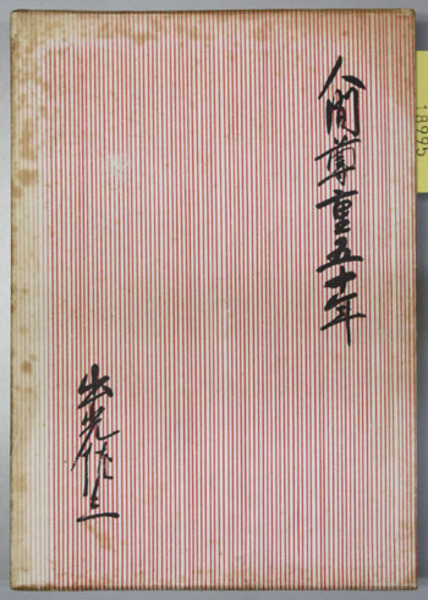 人間尊重五十年
出光佐三
18995